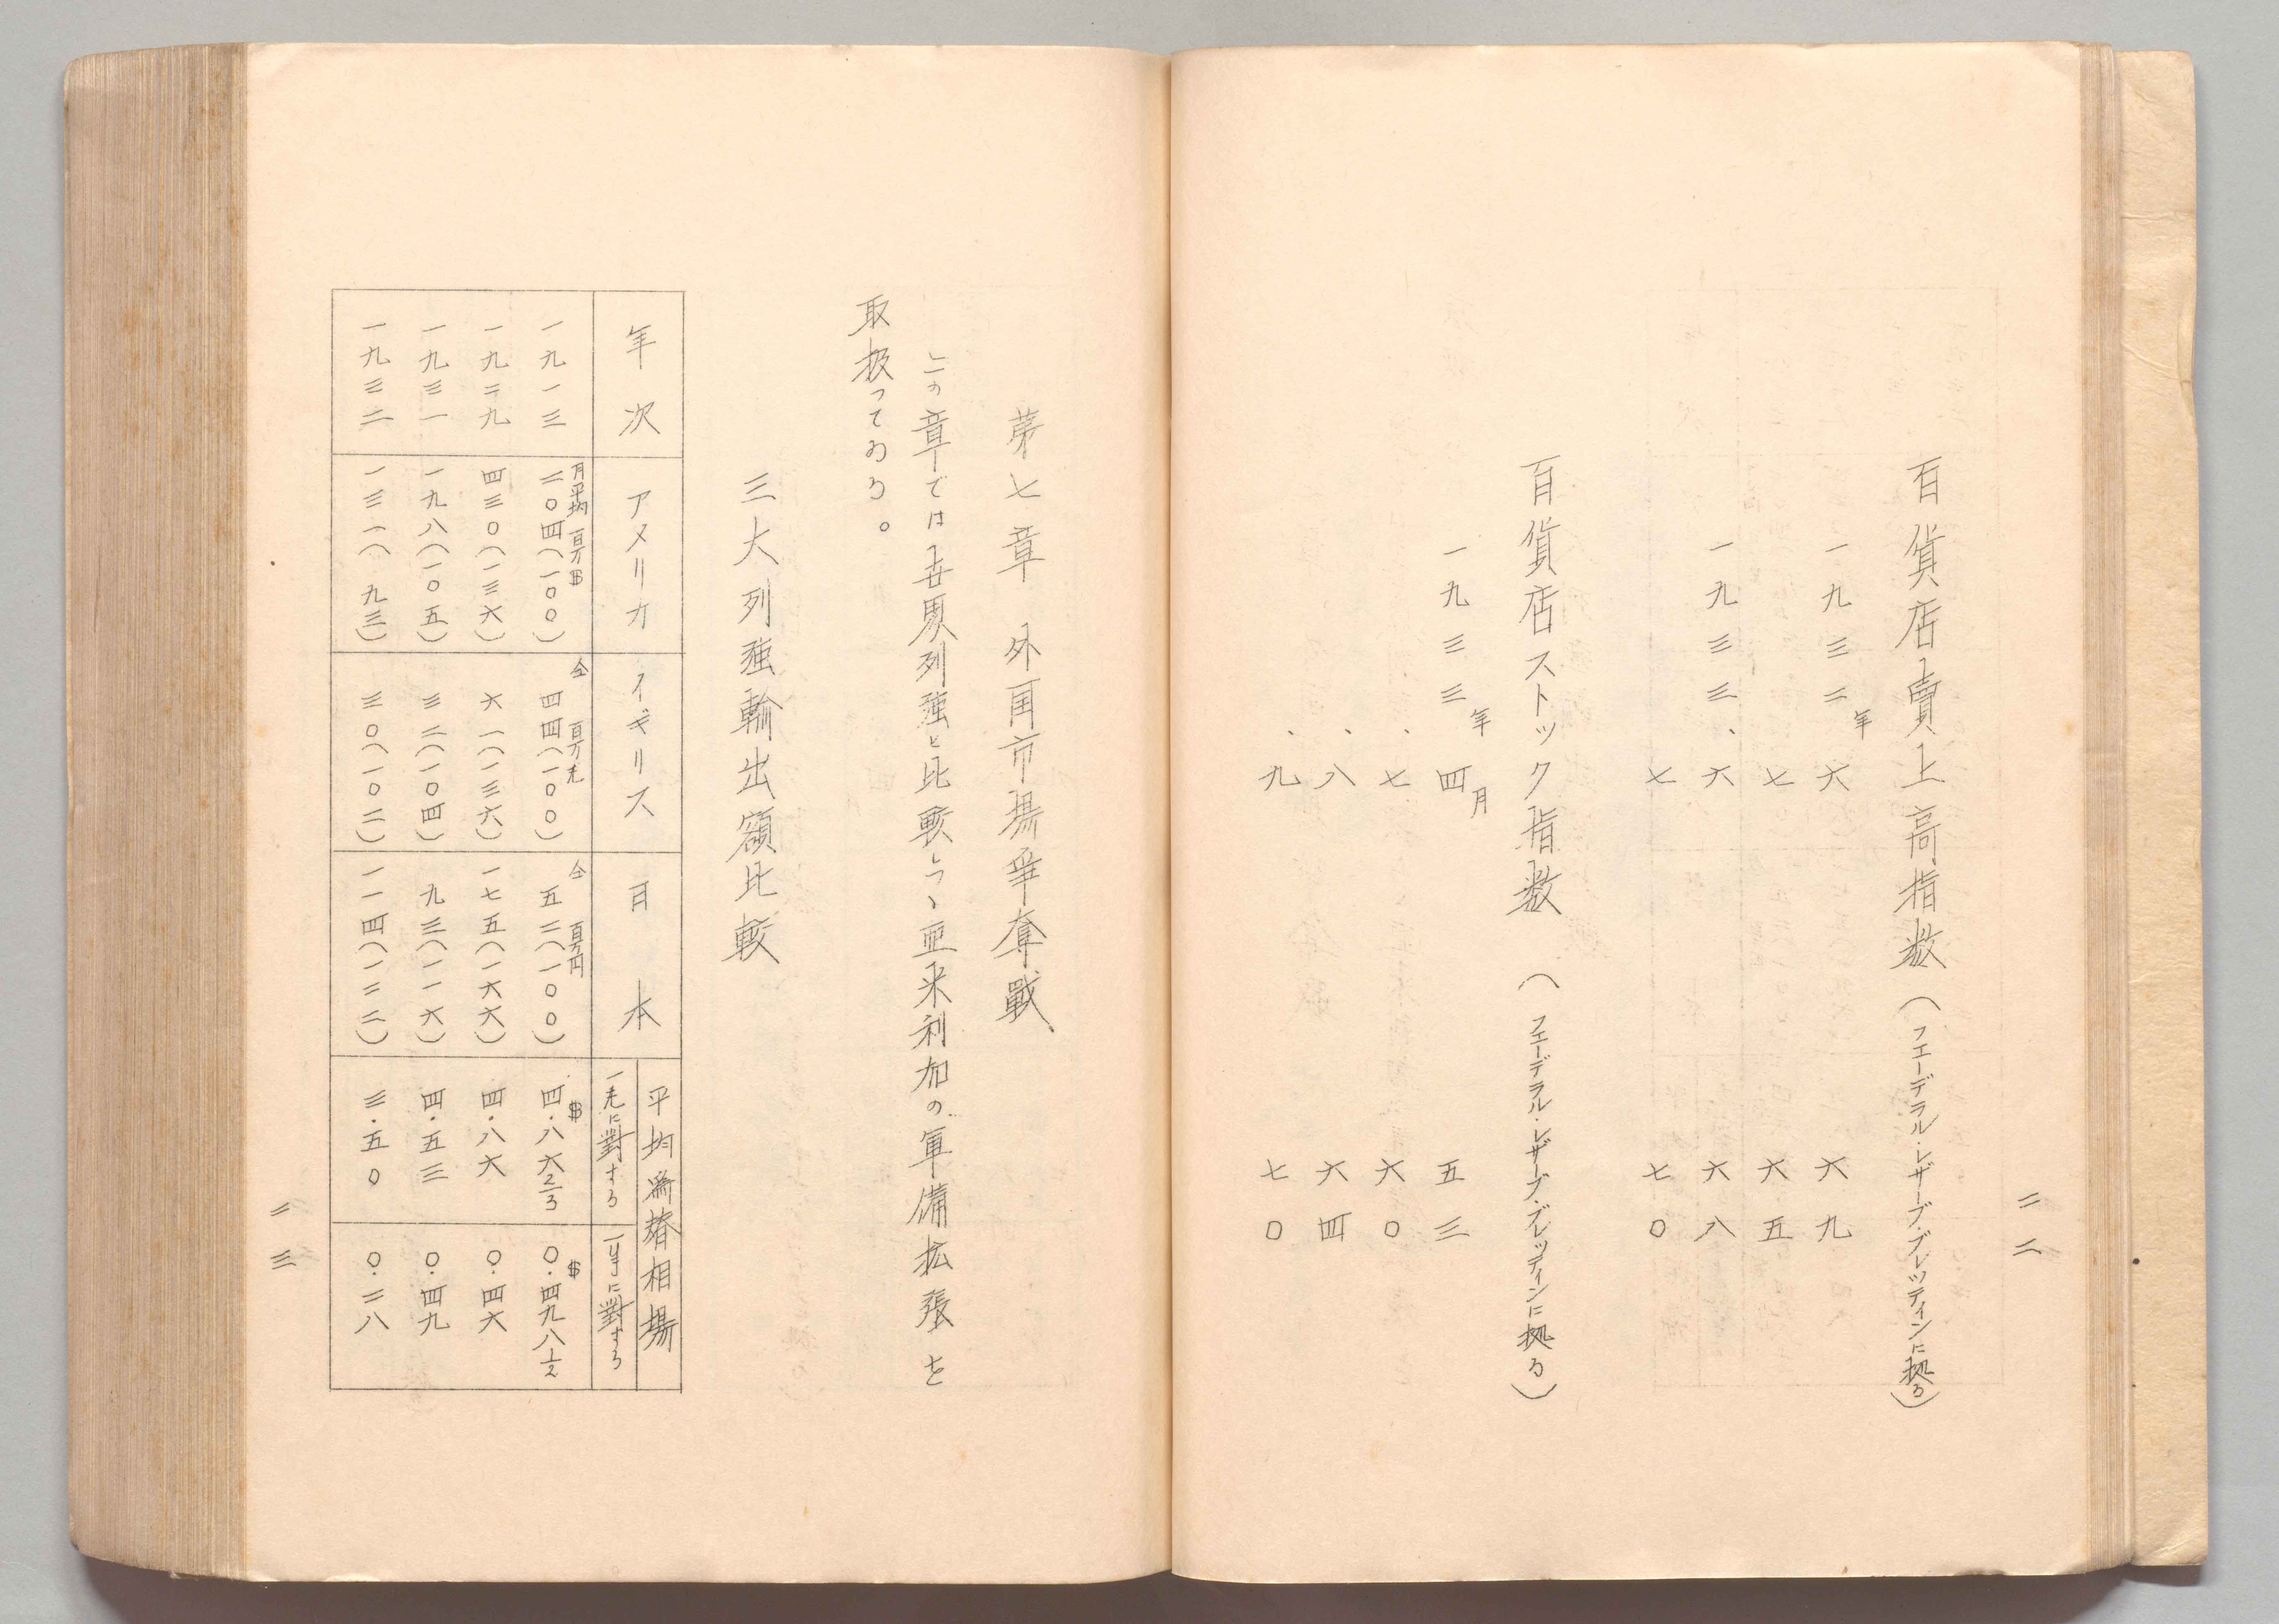 二二
百貨店賣上高指数（フエーデラル・レザーブ・ブレッティンに拠る）
一九三二年 六 六九
七 六五
一九三三、 六 六八
七 七〇
百貨店ストック指数（フエーデラル・レザーブ・ブレッティンに拠る）
一九三三年 四月 五三
、 七 六〇
、 八 六四
、 九 七〇
第七章 外国市場爭奪戰
この章では世界列強と比較しつゝ亜米利加の軍備拡張を
取扱ってゐる。
三大列强輸出額比較
年次 アメリカ イギリス 日本 平均爲替相場
一志に對する 一円に對する
月平均 百万$ 仝 百万志 仝 百万円 $ $
一九一三 二〇四（一〇〇） 四四（一〇〇） 五二（一〇〇） 四・八六2/3 〇・四九八1/2
一九二九 四三〇（一三六） 六一（一三六） 一七五（一六六） 四・八六 〇・四六
一九三一 一九八（一〇五） 三二（一〇四） 九三（一一六） 四・五三 〇・四九
一九三二 一三一（九三） 三〇（一〇二） 一一四（一二二） 三・五〇 〇・二八
二三